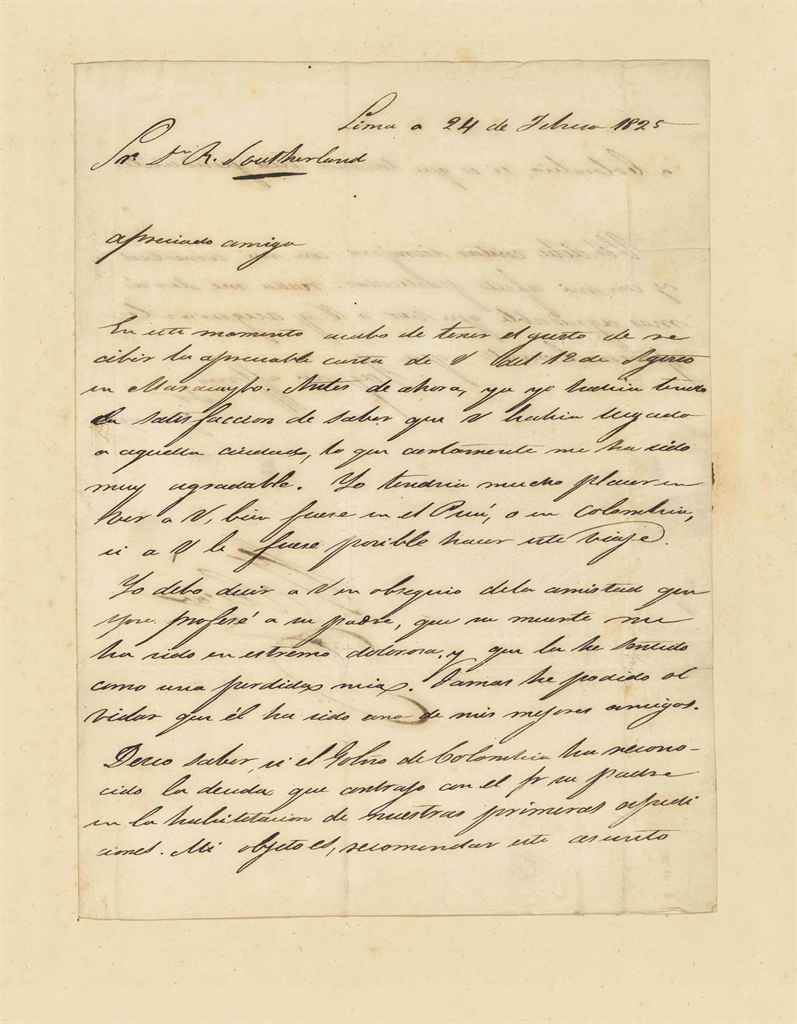 Lima a 24 de Febrero 1825
Sor. Dn. R. Southerland
apreciado amigo
En este momento acabo de tener el gusto de re
cibir la apreciable carta de V del 12 de Agosto
en Maracaybo. Antes de ahora, ya yo habia tenido
la satisfaccion de saber que V habia llegado
a aquella ciudad, lo que ciertamente me ha sido
muy agradable. Yo tendria mucho placer en
ver a V, bien fuese en el Perú, o en Colombia,
si a V le fuese posible hacer este viaje.
Yo debo decir a V en obsequio dela amistad que
profesé a su padre, que su muerte me
ha sido en estremo dolorosa, y que la he sentido
como una perdida mia. Jamas he podido ol
vidar que él ha sido uno de mis mejores amigos.
Deseo saber, si el Gobno de Colombia ha recono-
cido la deuda que contrajo con el Sr su padre
en la habilitacion de nuestras primeras espedi
ciones. Mi objeto es, recomendar este asunto